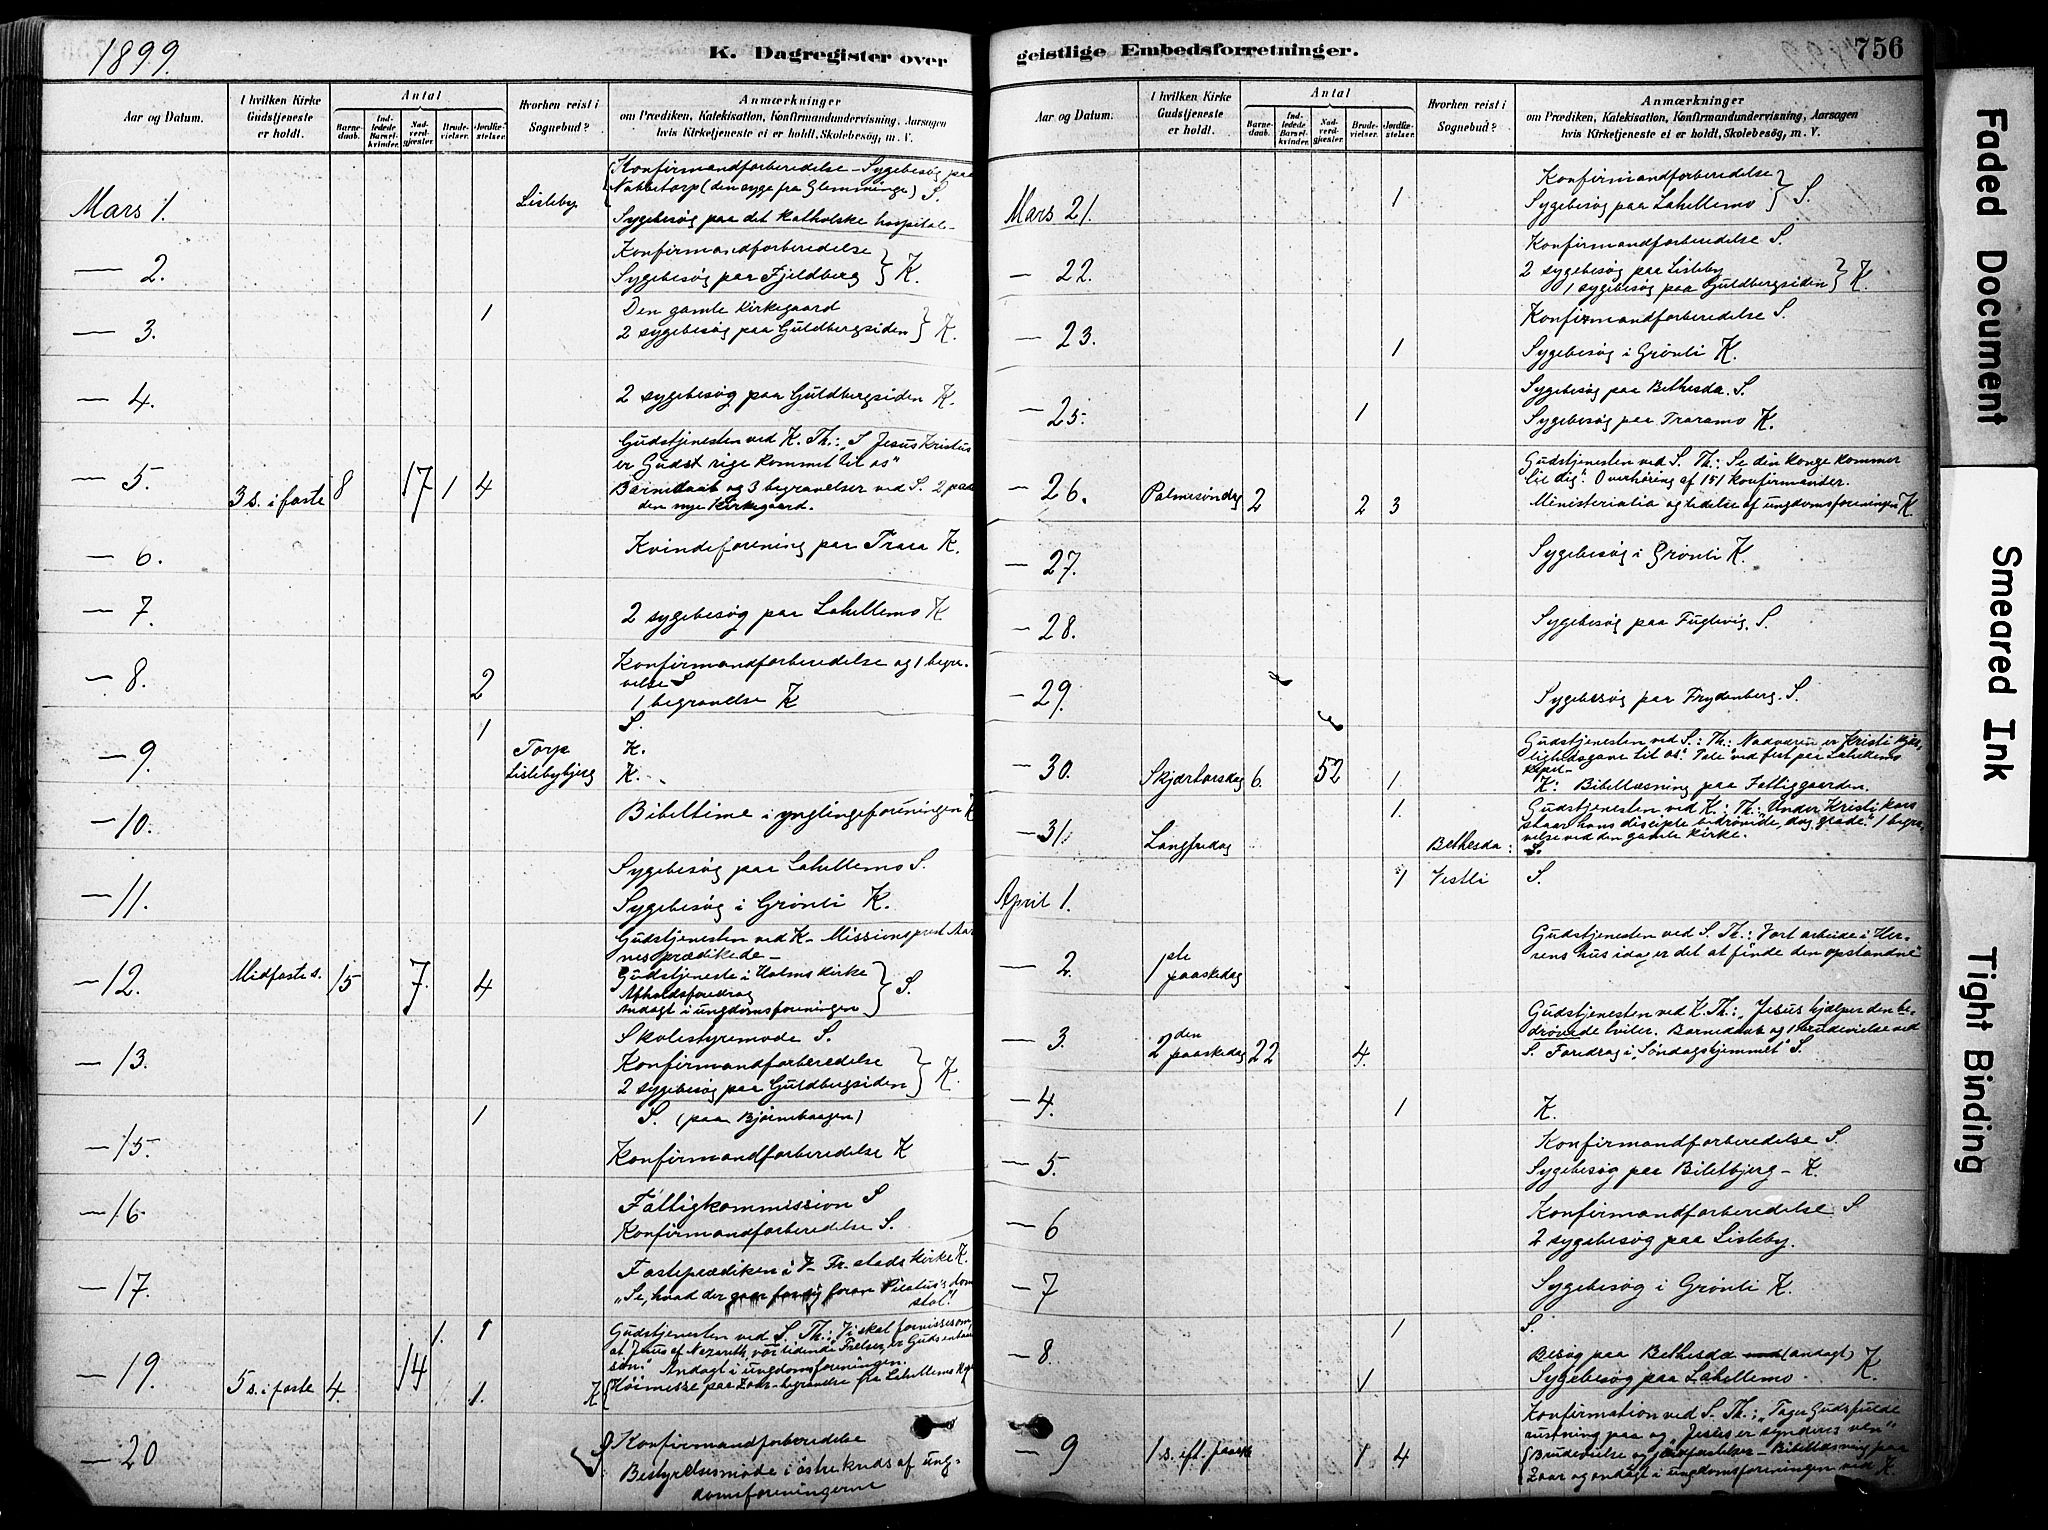 1899.
K. Dagregister over
Aar og Datum.
I hvilken Kirke Gudstjeneste er holdt.
Antal
Barnedaab.
Indledede Barselkvinder.
Nadverdgjæster.
Brudevielser.
Jordfæstelser.
Hvorhen reist i Sognebud?
Anmærkninger
om Prædiken, Katekisation, Konfirmandundervisning, Aarsagen
hvis Kirketjeneste ei er holdt, Skolebesøg, m. V.
Mars 1.
Lisleby
Konfirmandforberedelse - Sygebesøg paa
Nabbetorp (den syge fra Glemminge) S.
Sygebesøg paa det katholske hospital
— 2.
Konfirmandforberedelse
Sygebesøg paa Fjeldberg } K.
— 3.
1
Den gamle Kirkegaard
2 sygebesøg paa Guldbergsiden } K.
— 4.
2 sygebesøg paa Guldbergsiden K.
— 5.
3 s. i faste
8
17
1
4
Gudstjenesten ved K. Th.: "I Jesus Kristus
er Guds rige kommet til os"
Barnedaab og 3 begravelser ved S. 2 paa
den nye Kirkegaard.
— 6.
Kvindeforening paa Trara K.
— 7.
2 sygebesøg paa Lahellemo K
— 8.
2
Konfirmandforberedelse og 1 begra-
velse S
1 begravelse K
— 9.
1
S.
Torp K.
Lislebybjerg K.
— 10.
Bibeltime i ynglingeforeningen K
— 11.
Sygebesøg paa Lahellemo S.
Sygebesøg i Grønli K.
— 12.
Midfaste s.
15
7.
4
Gudstjenesten ved K - Missionsprest Aar
nes prædikede -
Gudstjeneste i Holms Kirke
Afholdsforedrag
Andagt i ungdomsforeningen } S.
— 13.
Skolestyremøde S.
Konfirmandforberedelse
2 sygebesøg paa Guldbergsiden } K.
— 15.
1
S. (paa Bjørnehaugen)
Konfirmandforberedelse K
— 16
Fattigkommission S
Konfirmandforberedelse S.
— 17.
Fasteprædiken i V. Fr. stads Kirke K.
"Se, hvad der foran Pilatus's dom
stol."
— 19.
5 s. i faste
4.
14
1.
1
1.
Gudstjenesten ved S. Th.: Vi skal forvisses om,
at Jesus af Nazareth, vor lidende Frelser, er Guds enbaar
søn." Andagt i ungdomsforeningen.
K { Høimesse paa Zoar - begravelse fra Lahellemo
— 20
S { Konfirmandforberedelse
Bestyrelsesmøde i østre kreds af ung-
domsforeningerne
geistlige Embedsforretninger.
756
Aar og Datum.
I hvilken Kirke Gudstjeneste er holdt.
Antal
Barnedaab.
Indledede Barselkvinder.
Nadverdgjæster.
Brudevielser.
Jordfæstelser.
Hvorhen reist i Sognebud?
Anmærkninger
om Prædiken, Katekisation, Konfirmandundervisning, Aarsagen
hvis Kirketjeneste ei er holdt, Skolebesøg, m. V.
Mars 21.
1
Konfirmandforberedelse
Sygebesøg paa Lahellemo } S.
— 22.
Konfirmandforberedelse S.
2 sygebesøg paa Lisleby
1 sygebesøg paa Guldbergsiden } K.
— 23.
1
Konfirmandforberedelse S.
Sygebesøg i Grønli K.
— 25.
1
Sygebesøg paa Bethesda. S.
Sygebesøg paa Traramo K.
— 26.
Palmesøndag
2
2
3
Gudstjenesten ved S. Th.: Se din konge kommer
til dig." Overhøring af 151 konfirmander.
Ministerialia og ledelse af ungdomsforeningen K.
— 27.
Sygebesøg i Grønli K.
— 28.
Sygebesøg paa Fuglevig. S.
— 29.
Sygebesøg paa Frydenberg. S.
— 30.
Skjærtorsdag
6.
52
1.
Gudstjenesten ved S.: Th: Nadveren er Kristi kjær-
lighedsgave til os." Tale ved fest paa Lahellemo
K: Bibellæsning paa Fattiggaarden.
— 31.
Langfredag
1.
Bethesda:
Gudstjenesten ved K.: Th: Under Kristi kors
staar hans disciple bedrøvede, dog glade." 1 begra-
velse ved den gamle kirke.
S.
April 1.
1
Vestli
S.
— 2.
1ste paaskedag
Gudstjenesten ved S. Th.: Vort arbeide i Her-
rens hus idag er det at finde den opstandne"
— 3.
2den paaskedag
22
4.
Gudstjenesten ved K. Th: "Jesus hjælper den be-
drøvede tviler. Barnedaab og 1 brudevielse ved
S. Foredrag i "Søndagshjemmet" S.
— 4.
1
K.
— 5.
Konfirmandforberedelse S.
Sygebesøg paa Biletbjerg - K.
— 6
Konfirmandforberedelse S
2 sygebesøg paa Lisleby.
— 7
Sygebesøg i Grønli K.
— 8.
1
1
S.
Besøg paa Bethesda (andagt)
Sygebesøg paa Lahellemo. } K.
— 9
1 s. eft. paaske
1
4
Konfirmation ved S. Th.: "Tager Guds fulde
rustning paa og "Jesus er synderes ven"
{ Brudevielse og jordfæstelser - Bibellæsning paa
Zoar og andagt i ungdomsforeningen ved K
Faded Document
Smeared Ink
Tight Binding